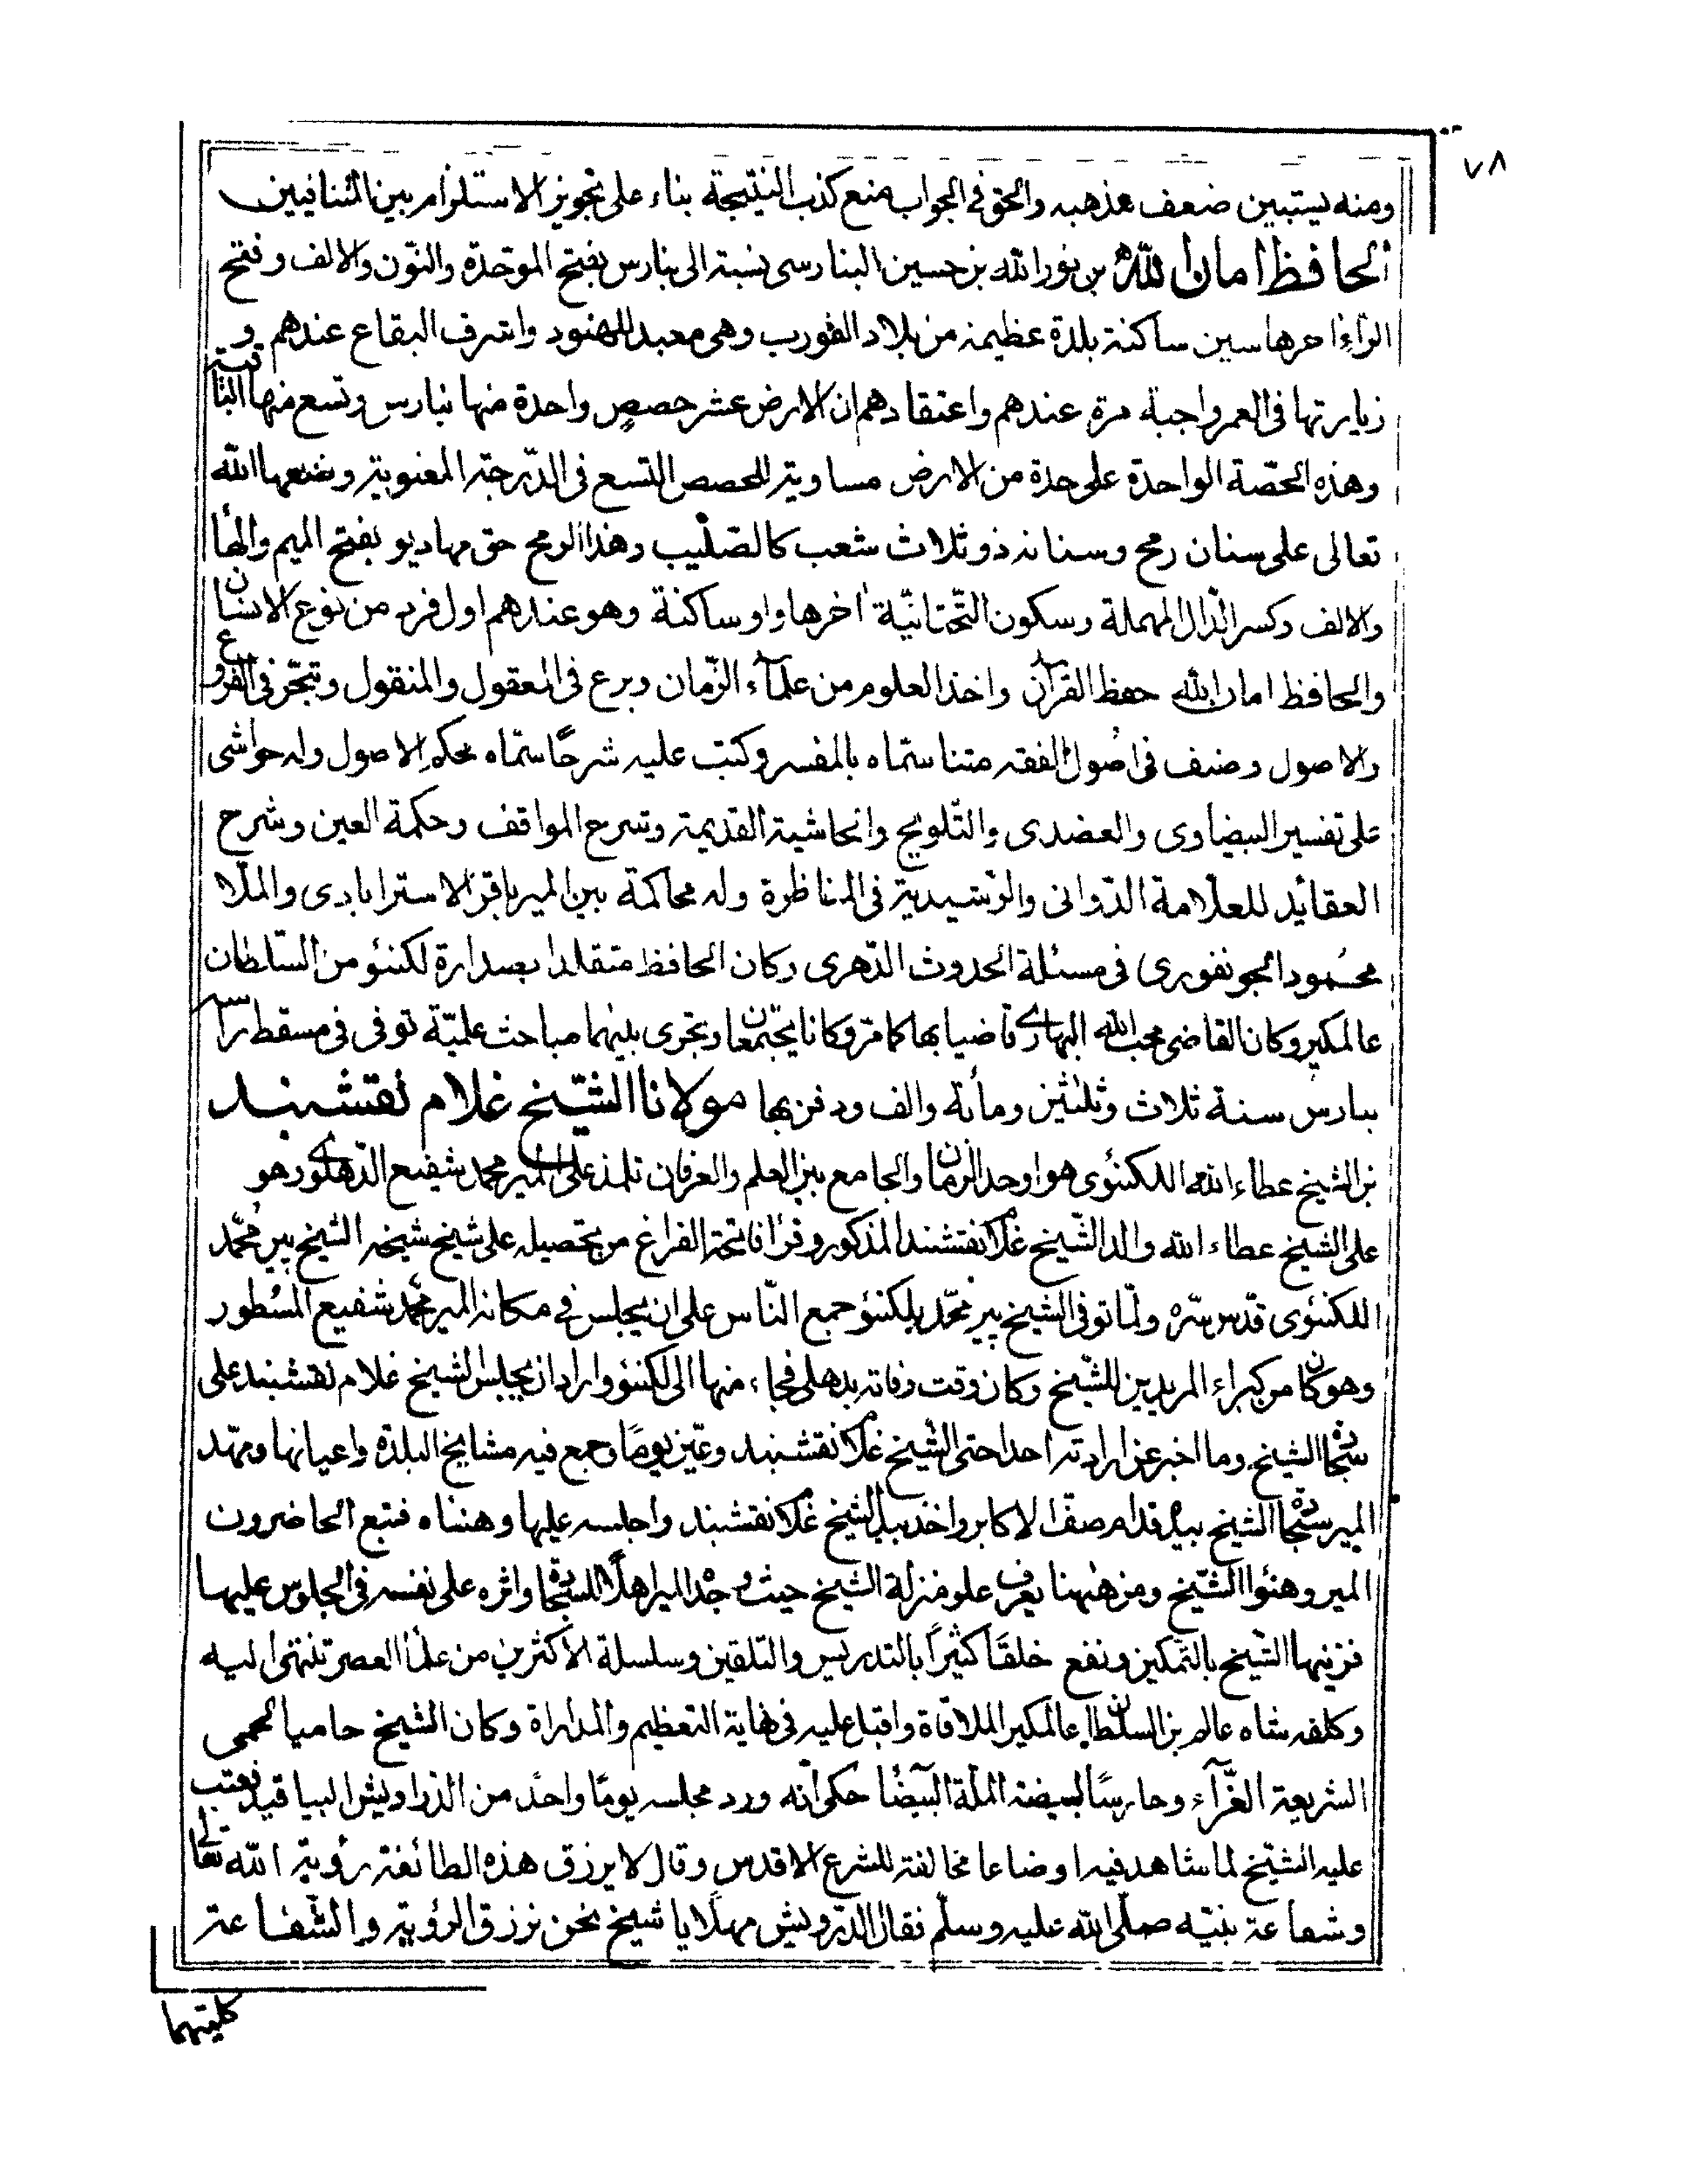 ٧٨
ومنه يستبين ضعف مذهبه والحق في الجواب منع كذب النتيجة بناء على تجويز الاستلزام بين المتنافيين
الحافظ امان الله بن نور الله بن حسين البنارسى نسبة الى بنارس بفتح الموحدة والنّون والالف وفتح
الراء اخرها سين ساكنة بلدة عظيمة من بلاد الفورب وهى معبد للهنود واشرف البقاع عندهم و
زيارتها فى العمر واجبة مرة عندهم واعتقادهم ان الارض عشر حصص واحدة منها بنارس وتسع منها البتاقية
وهذه الحصّة الواحدة على حدة من الارض مساوية للحصص التسع فى الدّرجة المعنوية وضعها الله
تعالى على سنان رمح وسنانه ذو ثلاث شعب كالصّليب وهذا الرمح حق مهاديو بفتح الميم والها
والالف وكسر الدّال المهملة وسكون التّحتانيّة اخرها واو ساكنة وهو عندهم اول فرد من نوع الانسان
والحافظ امان الله حفظ القرآن واخذ العلوم من علمآء الزّمان وبرع فى المعقول والمنقول وتبحّر فى الفروع
والاصول وصنف فى اصول الفقه متنا سمّاه بالمفسر وكتب عليه شرحًا سمّاه محكم الاصول وله حواشى
على تفسير البيضاوى والعضدى والتّلويح والحاشية القديمة وشرح المواقف وحكمة العين وشرح
العقايد للعلّامة الدّوانى والرّشيدية فى المناظرة وله محاكمة بين المير باقر الاسترابادى والملّا
محمود الجونفورى فى مسئلة الحدوث الدّهرى وكان الحافظ متقلدا بصدارة لكنئو من السّلطان
عالمكير وكان القاضى محب الله البهارى قاضيا بها كما مرّ وكانا يجتمعان وتجرى بينهما مباحث علميّة توفى فى مسقط راسه
ببنارس سنة ثلاث وثلثين ومائة والف ودفن بها مولانا الشّيخ غلام نقشبند
بن الشيخ عطاء الله اللكنئوى هو اوحد الزمان والجامع بين العلم والعرفان تلمذ على المير محمد شفيع الدّهلوى وهو
على الشيخ عطاء الله والد الشّيخ غلام نقشبند المذكور وقرأ فاتحة الفراغ من تحصيله على شيخ شيخه الشيخ پير محمّد
اللكنئوى قدّس سّره ولمّا توفى الشيخ پير محمّد بلكنئو جمع النّاس على ان يجلس فى مكانه المير محمّد شفيع المسطور
وهو كان من كبراء المريدين للشّيخ وكان وقت وفاته بدهلى فجاء منها الى لكنئو واراد ان يجلس الشيخ غلام نقشبند على
سجّادة الشيخ وما اخبر عن ارادته احدا حتى الشّيخ غلام نقشبند وعيّن يومًا وجمع فيه مشايخ البلدة واعيانها ومهد
المير سجّادة الشيخ بيده قدام صفّ الاكابر واخذ بيد الشيخ غلام نقشبند واجلسه عليها وهنئاه فتبع الحاضرون
المير وهنئوا الشّيخ ومن ههنا يعرف علو منزلة الشيخ حيث وجده المير اهلًا للسجّادة واثره على نفسه فى الجلوس عليها
فزينها الشّيخ بالتّمكين ونفع خلقًا كثيرًا بالتدريس والتّلقين وسلسلة الاكثرين من علمآ العصر تنتهى اليه
وكلفه شاه عالم بن السلطان عالمكير الملاقاة واقبل عليه فى نهاية التعظيم والمداراة وكان الشيخ حاميا لحمى
الشريعة الغرّآء وحارسًا لبيضة الملّة البيضا حكى انّه ورد مجلسه يومًا واحد من الدّراويش البياقيد فعتب
عليه الشّيخ لما شاهد فيه اوضاعا مخالفة للشرع الاقدس وقال لا يرزق هذه الطائفة رؤية الله تعالى
وشفاعة نبيّه صلّى الله عليه وسلّم فقال الدّرويش مهلًا يا شيخ نحن نرزق الرؤية والشّفاعة
كليتهما